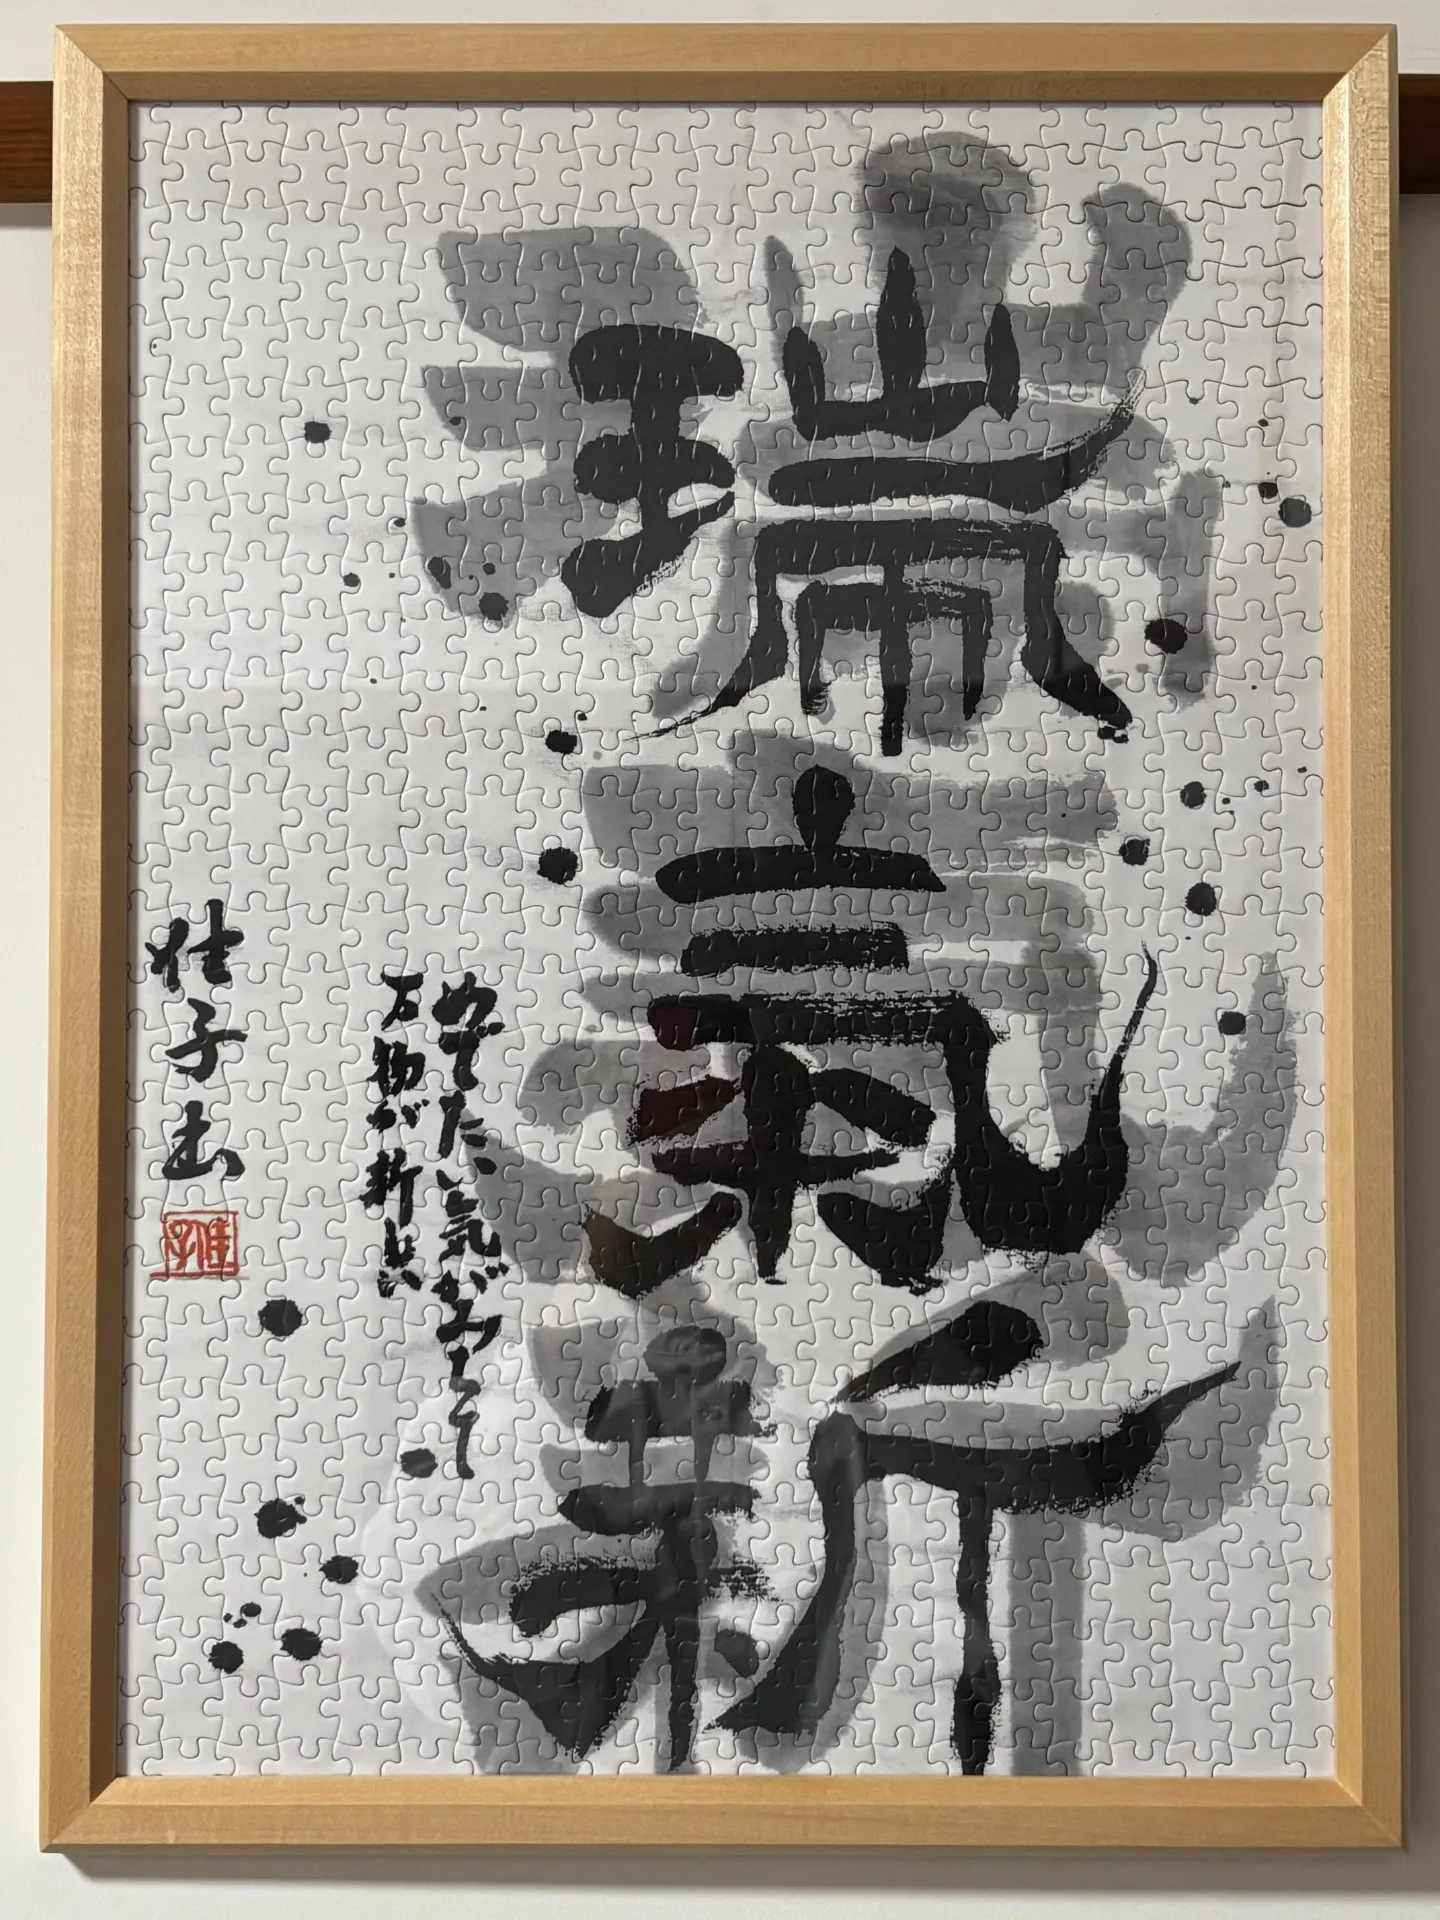 瑞氣新
めでたい気がみちて
万物が新しい
子書